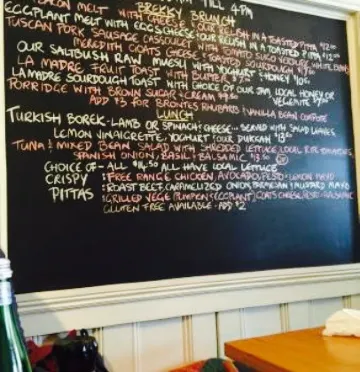 TILL 4PM
BREKSY BRUNCH
BACON MELT WITH CHEESE + OUR RELISH IN A TOASTED PITTA
EGGPLANT MELT WITH EGGS, CHEESE, OUR RELISH IN A TOASTED PITTA $12.00
TUSCAN PORK SAUSAGE CASSOULET WITH TOMATO WHITE BEANS
MEREDITH GOATS CHEESE + TOASTED SOURDOUGH
OUR SALTBUSH RAW MUESLI WITH YOGHURT + HONEY
LA MADRE FRUIT TOAST WITH BUTTER
LA MADRE SOURDOUGH TOAST WITH CHOICE OF OUR JAM, LOCAL HONEY OR VEGEMITE
PORRIDGE WITH BROWN SUGAR + CREAM
ADD $3 FOR BRONTES RHUBARB + VANILLA BEAN COMPOTE
LUNCH
TURKISH BOREK - LAMB OR SPINACH + CHEESE... SERVED WITH SALAD LEAVES
LEMON VINAIGRETTE, YOGHURT + OUR DUKKAH
TUNA + MIXED BEAN SALAD WITH SHREDDED LETTUCE, LOCAL RIPE TOMATOES
SPANISH ONION, BASIL + BALSAMIC
CHOICE OF - ALL HAVE LOCAL LETTUCE
CRISPY : FREE RANGE CHICKEN, AVOCADO, PESTO + LEMON MAYO
PITTAS : ROAST BEEF, CARAMELIZED ONION, PARMESAN + MUSTARD MAYO
: GRILLED VEGE (PUMPKIN + EGGPLANT) GOATS CHEESE, PESTO + BALSAMIC
GLUTEN FREE AVAILABLE - ADD $2